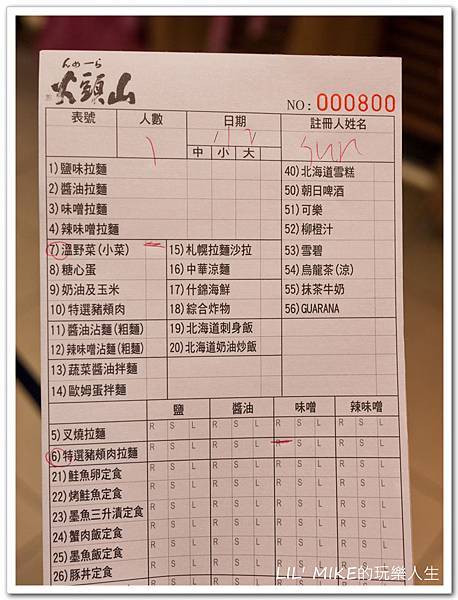 らーめん
山頭火
NO: 000800
表號 人數 日期 註冊人姓名
1 1/17 sun
中 小 大
1)鹽味拉麵
2)醬油拉麵
3)味噌拉麵
4)辣味噌拉麵
7)溫野菜(小菜)
8)糖心蛋
9)奶油及玉米
10)特選豬頰肉
11)醬油沾麵(粗麵)
12)辣味噌沾麵(粗麵)
13)蔬菜醬油拌麵
14)歐姆蛋拌麵
15)札幌拉麵沙拉
16)中華涼麵
17)什錦海鮮
18)綜合炸物
19)北海道刺身飯
20)北海道奶油炒飯
40)北海道雪糕
50)朝日啤酒
51)可樂
52)柳橙汁
53)雪碧
54)烏龍茶(涼)
55)抹茶牛奶
56)GUARANA
鹽 醬油 味噌 辣味噌
5)叉燒拉麵 R S L R S L R S L R S L
6)特選豬頰肉拉麵 R S L R S L R S L R S L
21)鮭魚卵定食 R S L R S L R S L R S L
22)烤鮭魚定食 R S L R S L R S L R S L
23)墨魚三升漬定食 R S L R S L R S L R S L
24)蟹肉飯定食 R S L R S L R S L R S L
25)墨魚飯定食 R S L R S L R S L R S L
26)豚丼定食 R S L R S L R S L
LIL' MIKE的玩樂人生